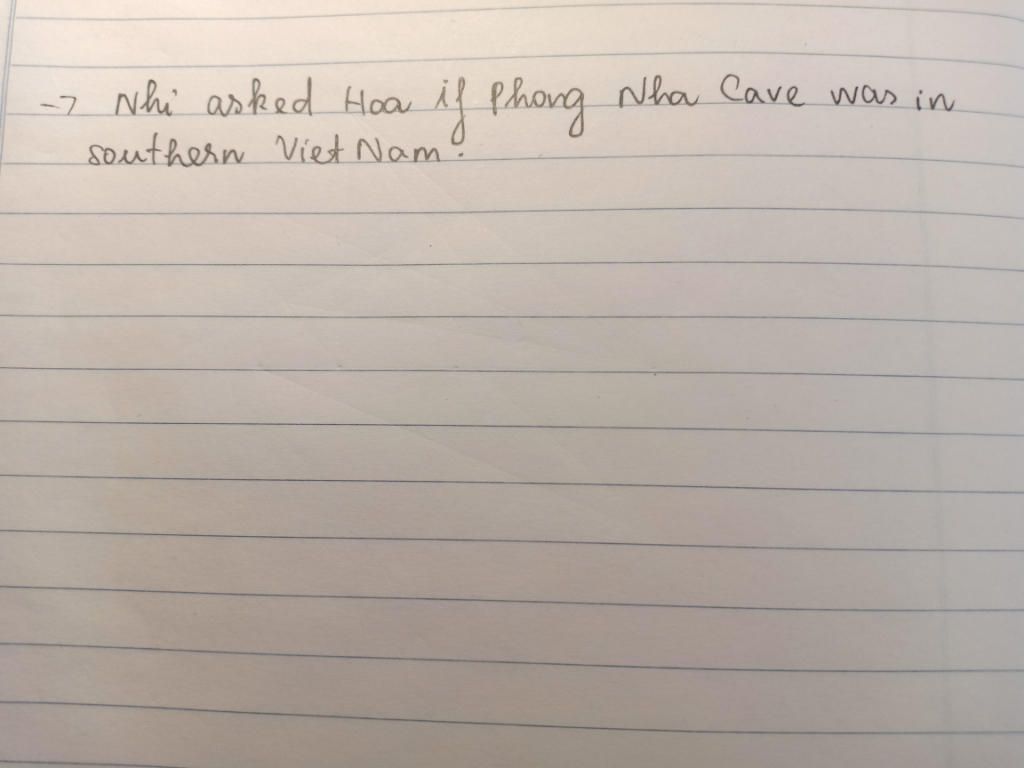 -> Nhi asked Hoa if Phong Nha Cave was in
southern Viet Nam.